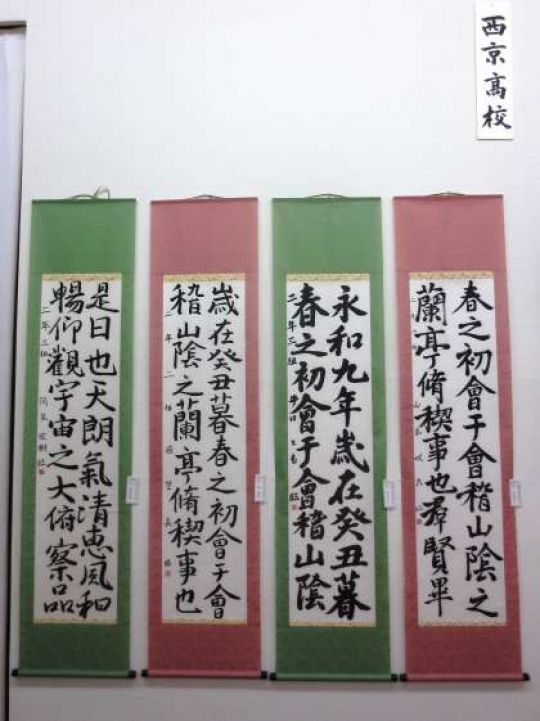 西京高校
春之初會于會稽山陰之
蘭亭脩稧事也羣賢畢
永和九年歳在癸丑暮
春之初會于會稽山陰
歳在癸丑暮春之初會于會
稽山陰之蘭亭脩稧事也
是日也天朗氣清恵風和
暢仰觀宇宙之大俯察品
二年三組